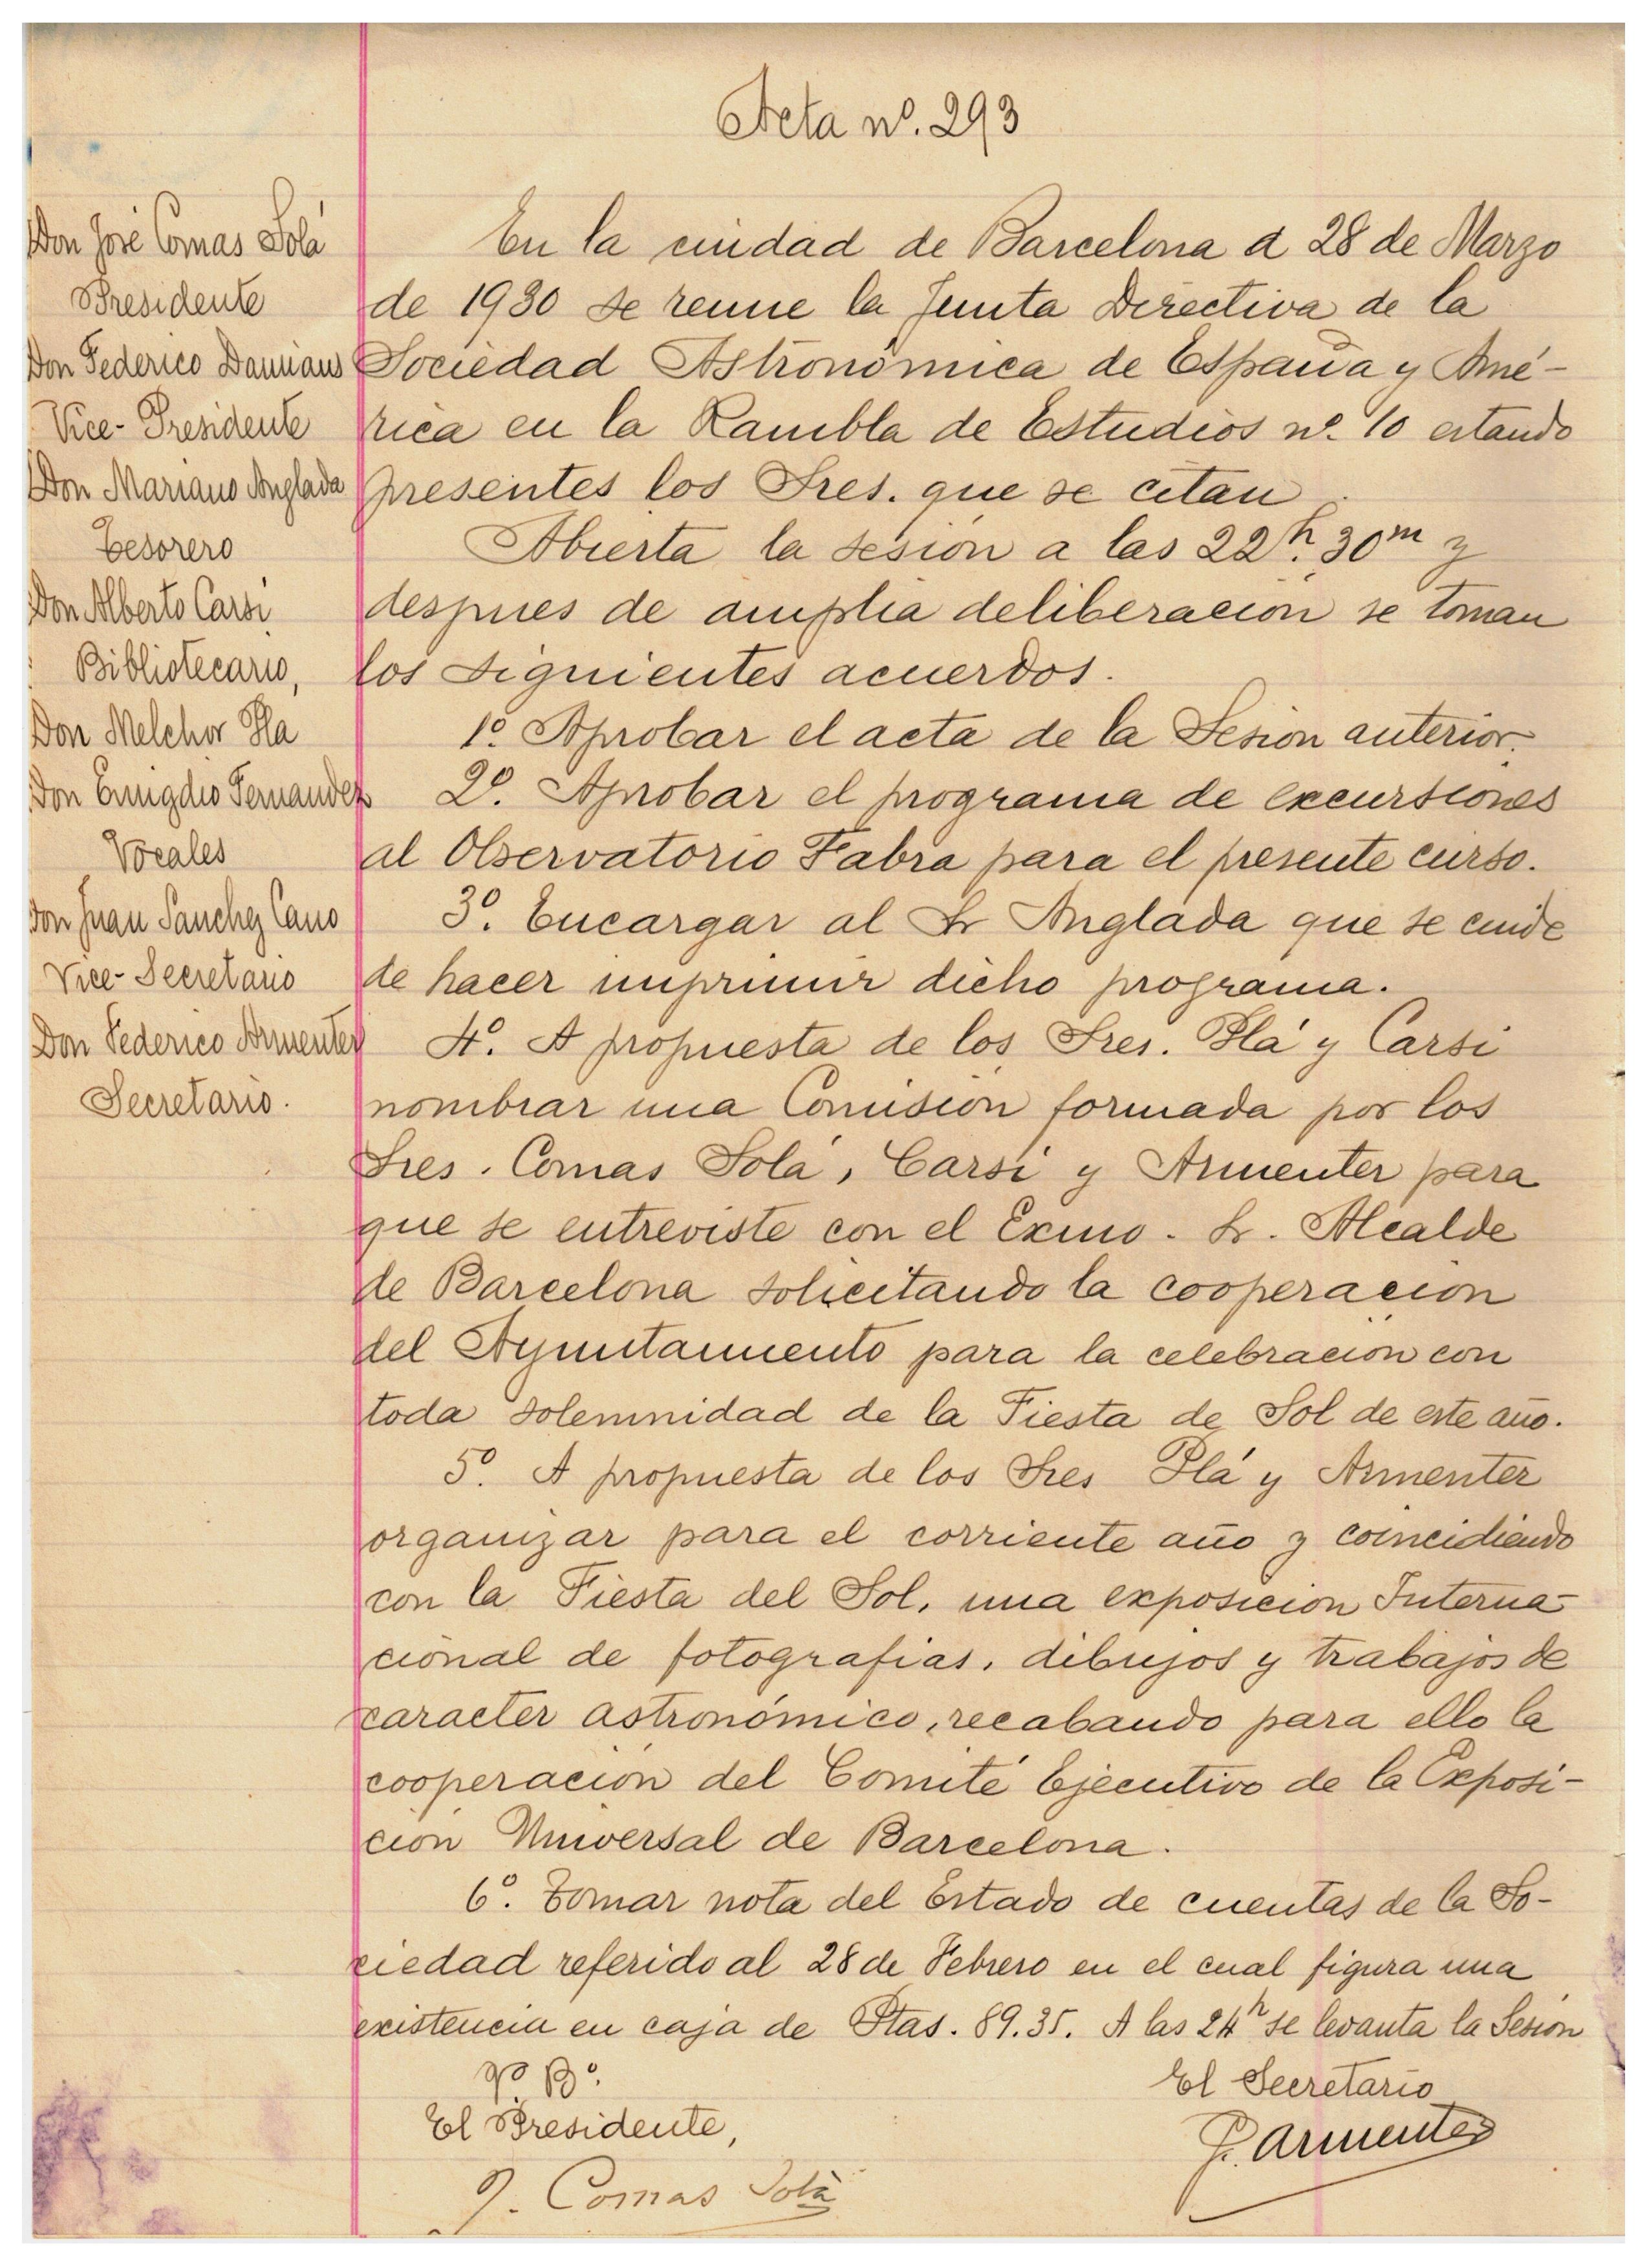 Acta nº. 293
Don José Comas Solá
Presidente
Don Federico Damians
Vice-Presidente
Don Mariano Anglada
Tesorero
Don Alberto Carsí
Bibliotecario,
Don Melchor Pla
Don Emigdio Fernandez
Vocales
Don Juan Sanchez Cano
Vice-Secretario
Don Federico Armenter
Secretario.
En la ciudad de Barcelona a 28 de Marzo
de 1930 se reune la Junta Directiva de la
Sociedad Astronómica de España y Amé-
rica en la Rambla de Estudios nº 10 estando
presentes los Sres. que se citan.
Abierta la sesión a las 22h. 30m y
despues de amplia deliberación se toman
los siguientes acuerdos.
1º. Aprobar el acta de la Sesión anterior.
2º. Aprobar el programa de excursiones
al Observatorio Fabra para el presente curso.
3º. Encargar al Sr Anglada que se cuide
de hacer imprimir dicho programa.
4º. A propuesta de los Sres. Plá y Carsi
nombrar una Comisión formada por los
Sres. Comas Solá, Carsí y Armenter para
que se entreviste con el Exmo. Sr. Alcalde
de Barcelona solicitando la cooperación
del Ayuntamiento para la celebración con
toda solemnidad de la Fiesta de Sol de este año.
5º. A propuesta de los Sres Plá y Armenter
organizar para el corriente año y coincidiendo
con la Fiesta del Sol, una exposición Interna-
cional de fotografias, dibujos y trabajos de
caracter astronómico, recabando para ello la
cooperación del Comité Ejecutivo de la Exposi-
ción Universal de Barcelona.
6º. Tomar nota del Estado de cuentas de la So-
ciedad referido al 28 de Febrero en el cual figura una
existencia en caja de Ptas. 89.35. A las 24h se levanta la Sesión
Vº Bº.
El Presidente,
J. Comas Solà
El Secretario
F. Armenter